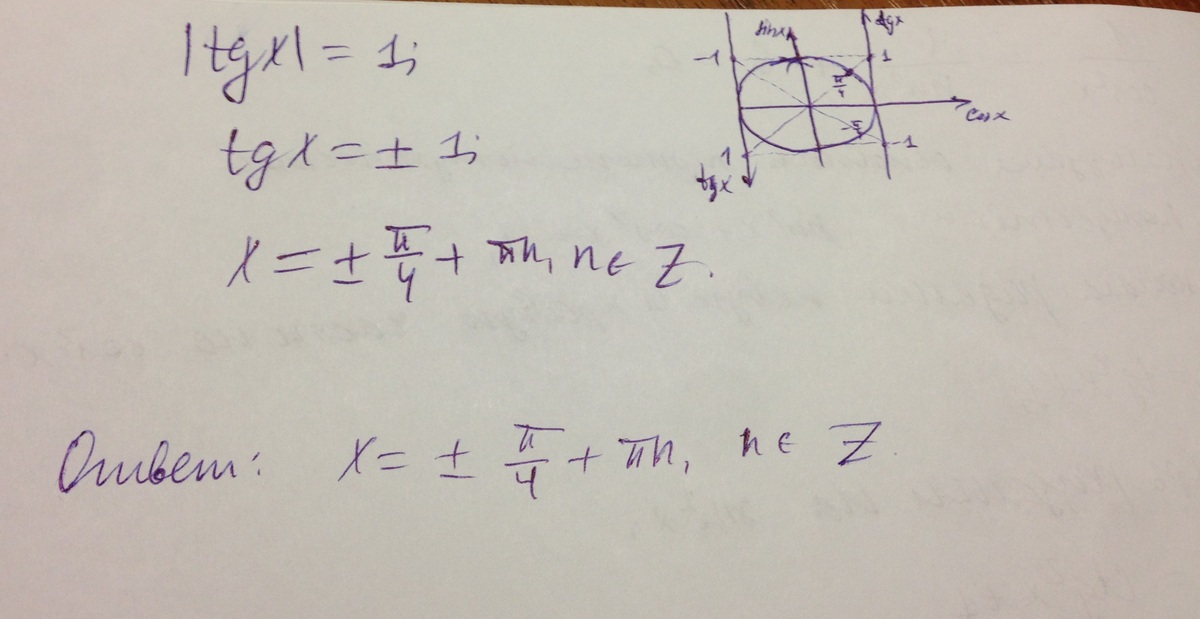 |tgx| = 1;
tgx = ± 1;
x = ± π/4 + πn, n ∈ Z.
sinx
tgx
-1
1
π/4
cosx
-π/4
-1
1
tgx
Ответ: x = ± π/4 + πn, n ∈ Z.